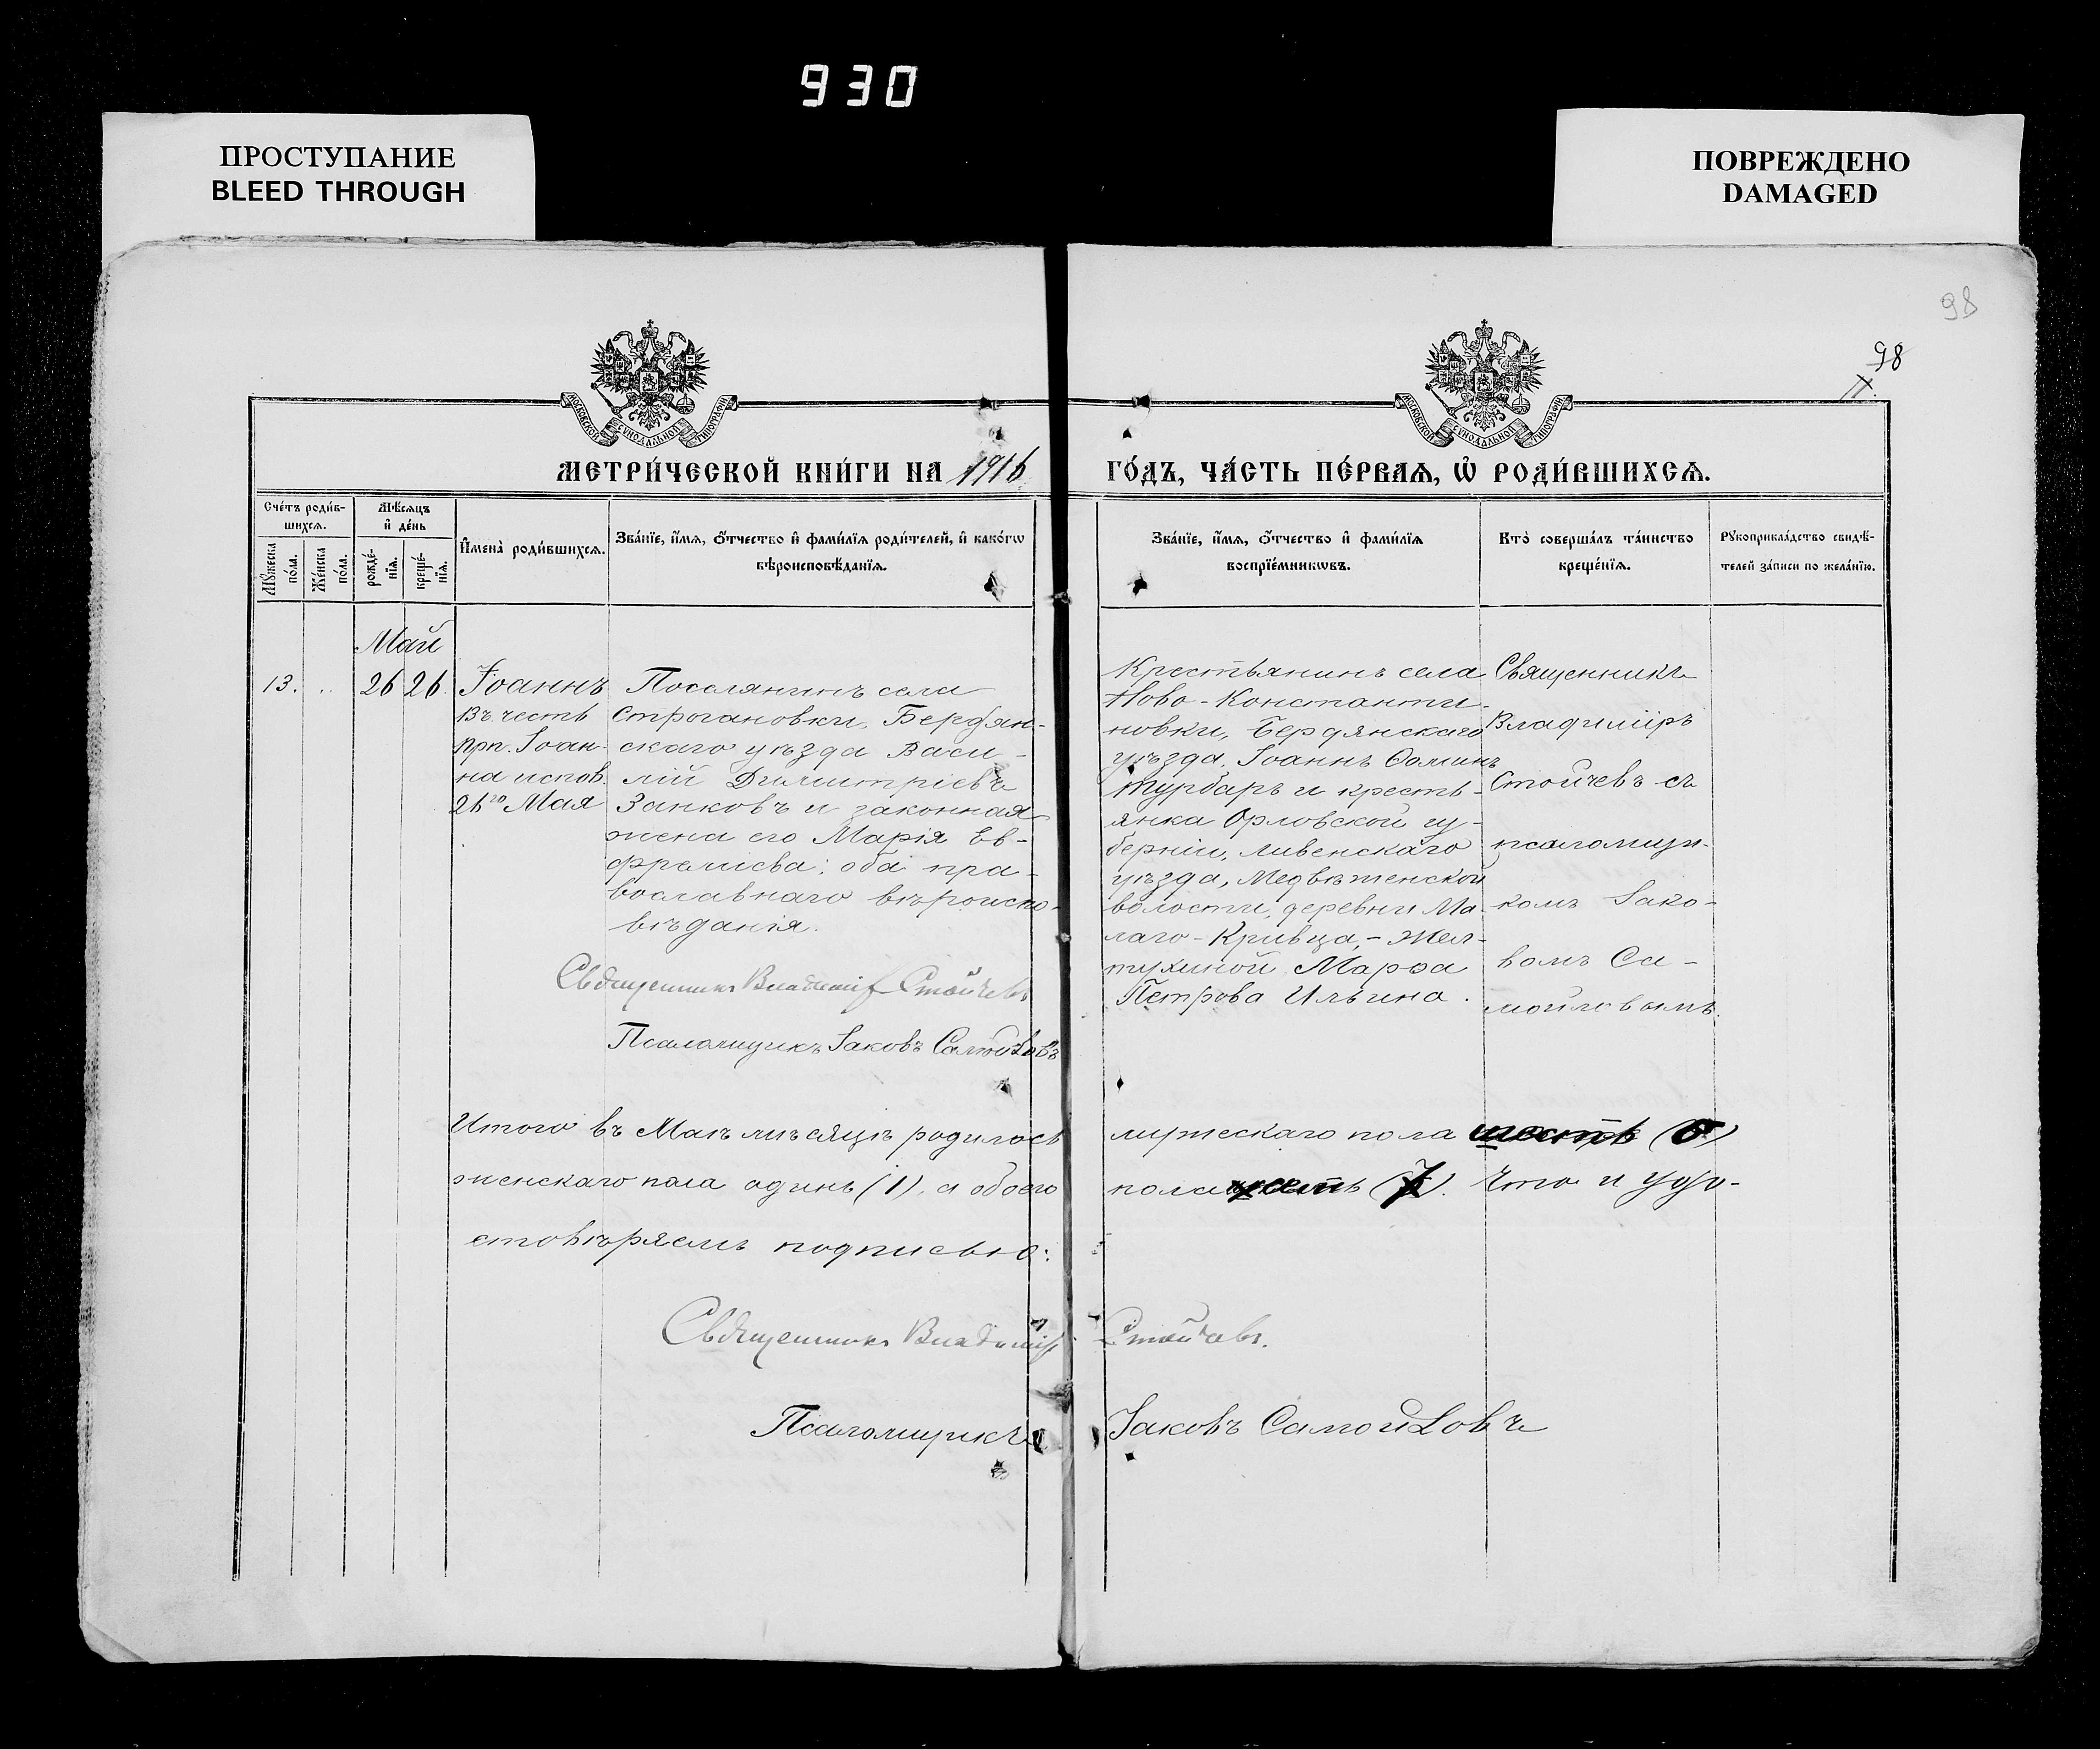 930
ПРОСТУПАНИЕ
BLEED THROUGH
ПОВРЕЖДЕНО
DAMAGED
98
98
11.
МОСКОВСКОЙ СѴНОДАЛЬНОЙ ТИПОГРАФІИ
МОСКОВСКОЙ СѴНОДАЛЬНОЙ ТИПОГРАФІИ
МЕТРИ́ЧЕСКОЙ КНИ́ГИ НА 1916 ГО́ДЪ, ЧА́СТЬ ПЕ́РВАѦ, Ѡ҆ РОДИ́ВШИХСѦ.
Сче́тъ роди́в-
шихсѧ.
Мꙋ́жеска
по́ла.
Же́нска
по́ла.
Мѣ́сѧцъ
и҆ де́нь
рожде́-
нїѧ.
креще́-
нїѧ.
И҆мена̀ роди́вшихсѧ.
Зва́нїе, и҆́мѧ, ѻ҆́тчество и҆ фами́лїѧ роди́телей, и҆ како́гѡ
вѣроисповѣ́данїѧ.
Зва́нїе, и҆́мѧ, ѻ҆́тчество и҆ фами́лїѧ
воспрїе́мникѡвъ.
Кто̀ соверша́лъ та́инство
креще́нїѧ.
Рꙋкоприкла́дство свидѣ́-
телей за́писи по жела́нїю.
Май
13. .. 26 26.
Іоаннъ
Въ честь
прп. Іоан-
на испов.
26го Мая
Поселянинъ села
Строгановки, Бердян-
скаго уѣзда Васи-
лій Димитріевъ
Занковъ и законная
жена его Марія Ев-
фремiева; оба пра-
вославнаго вѣроиспо-
вѣданія.
Священникъ Владиміръ Стойчевъ
Псаломщикъ Іаковъ Самойловъ
Крестьянинъ села
Ново-Константи-
новки, Бердянскаго
уѣзда, Іоаннъ Ѳоминъ
Турбаръ и кресть-
янка Орловской гу-
берніи, Ливенскаго
уѣзда, Медвѣженской
волости, деревни Ма-
лаго-Кривца,-Жел-
тухиной Марѳа
Петрова Ильина.
Священникъ
Владиміръ
Стойчевъ съ
псаломщи-
комъ Іако-
вомъ Са-
мойловымъ.
Итого въ Маѣ мѣсяцѣ родилось мужескаго пола шесть (6)
женскаго пола одинъ (1), а обоего пола (7). Что и удо-
стовѣряемъ подписью:
Священникъ Владиміръ Стойчевъ.
Псаломщикъ Іаковъ Самойловъ